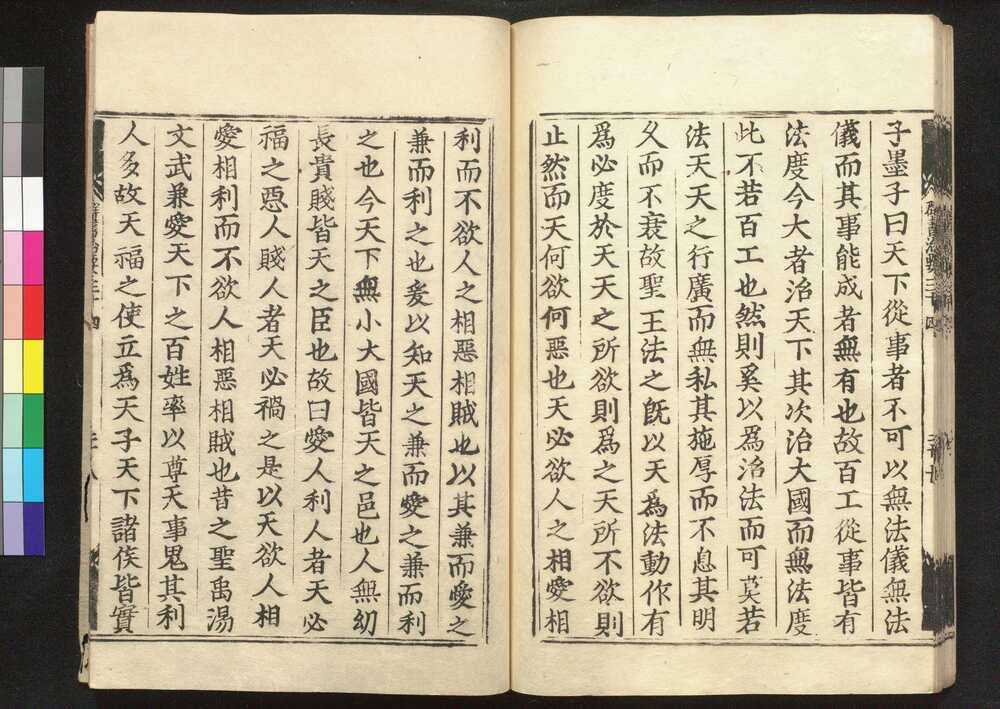 子墨子曰天下從事者不可以無法儀無法
儀而其事能成者無有也故百工從事皆有
法度今大者治天下其次治大國而無法度
此不若百工也然則奚以爲治法而可莫若
法天天之行廣而無私其施厚而不息其明
久而不衰故聖王法之既以天爲法動作有
爲必度於天天之所欲則爲之天所不欲則
止然而天何欲何惡也天必欲人之相愛相
利而不欲人之相惡相賊也以其兼而愛之
兼而利之也奚以知天之兼而愛之兼而利
之也今天下無小大國皆天之邑也人無幼
長貴賤皆天之臣也故曰愛人利人者天必
福之惡人賤人者天必禍之是以天欲人相
愛相利而不欲人相惡相賊也昔之聖禹湯
文武兼愛天下之百姓率以尊天事鬼其利
人多故天福之使立爲天子天下諸侯皆賓
群書治要三十四